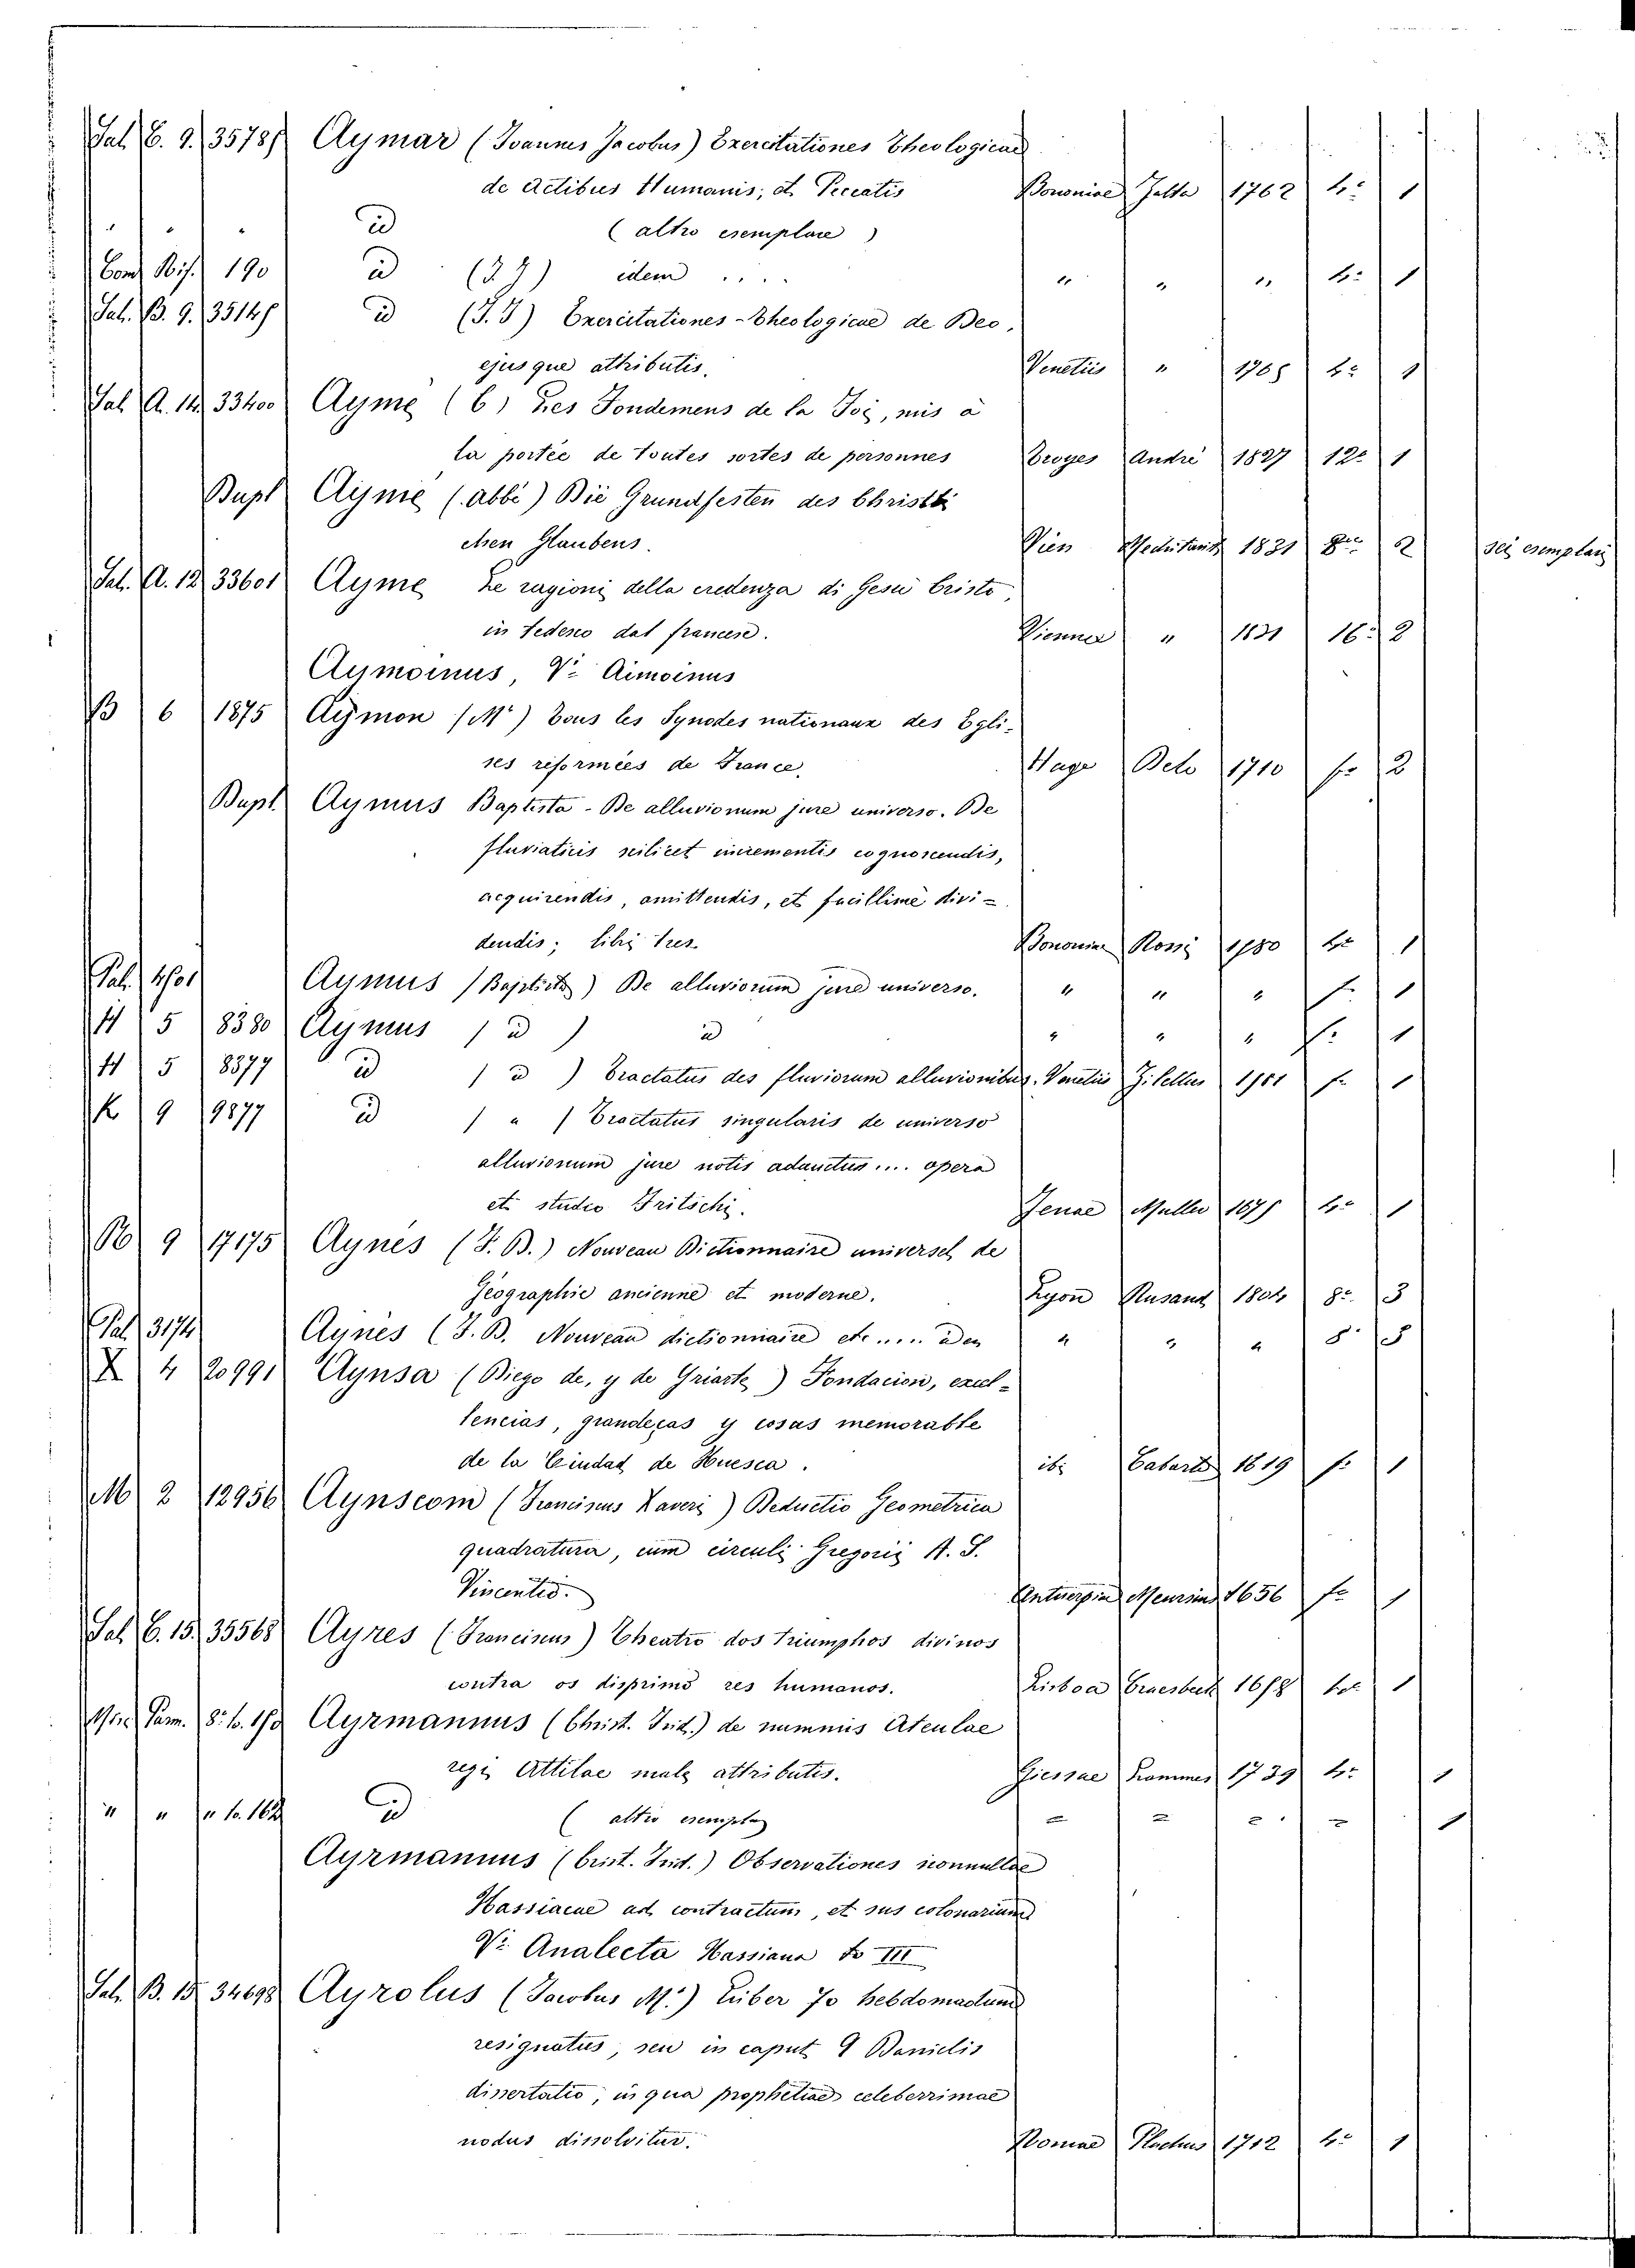 Sal. C. 9. 35785 Aymar (Joannes Jacobus) Exercitationes Theologicae
de Actibus Humanis; et Peccatis Bononiae Jalta 1762 4.º 1
" " " id (altro esemplare)
Cons Bis. 190 id (J J) idem .... " " " 4.º 1
Sal. B. 9. 35145 id (J. J) Exercitationes Theologicae de Deo,
ejusque attributis. Venetiis " 1765 4.º 1
Sal. A. 14. 33400 Aymé (C) Les Fondemens de la Foi, mis à
la portée de toutes sortes de personnes Troyes André 1827 12.º 1
Dupl Aymé (abbé) Die Grundfesten des Christli
chen Glaubens. Vien 1831 8.º 2 sei esemplari
Sal. A. 12 33601 Ayme Le ragioni della credenza di Gesù Cristo,
in tedesco dal francese. Viennae " 1831 16.º 2
Aymoinus, V. Aimoinus
B 6 1875 Aymon (M.) Tous les Synodes nationaux des Egli-
ses réformées de France. Haye Delo 1710 f.º 2
Dupl. Aymus Baptista - De alluvionum jure universo. De
fluviaticis scilicet incrementis cognoscendis,
acquirendis, amittendis, et facillimè divi-
dendis; libri tres. Bononiae Rossi 1580 f.º 1
Pal. 4501 Aymus (Baptista) De alluvionum jure universo. " " " f. 1
H 5 8380 Aymus (id) id " " " f. 1
H 5 8377 id (id) Tractatus des fluviorum alluvionibus. Venetiis Zilettus 1581 f. 1
K 9 9877 id ( " ) Tractatus singularis de universo
alluvionum jure notis adauctus .... opera
et studio Fritschi. Jenae Muller 1675 4.º 1
N 9 17175 Aynès (F. D.) Nouveau Dictionnaire universel de
Géographie ancienne et moderne. Lyon Rusand 1804 8.º 3
Pal. 3174 Aynès (F. D. Nouveau dictionnaire etc ..... idem " " " 8.º 3
X 4 20991 Aynsa (Diego de, y de Griarte) Fondacion, excel-
lencias, grandeças y cosas memorable
de la Ciudad de Huesca. ibi Cabarte 1619 f.º 1
M 2 12956 Aynscom (Franciscus Xaveri) Deductio Geometrica
quadratura, cum circuli Gregorii A. S.
Vincentio. Antuerpiae Meursius 1656 f.º 1
Sal C. 15. 35568 Ayres (Franciscus) Theatro dos triumphos divinos
contra os disprimo res humanos. Lisboa Craesbeck 1678 4.º 1
Parm. 8.º Ayrmannus (Christ. Frid.) de nummis Ateulae
regi Attilae male attributis. Giessae Krommer 1739 4.º 1
" " " 162 id (altro esemplar " " " " 1
Ayrmannus (Crist. Frid.) Observationes nonnullae
Hassiacae ad contractum, et jus colonarium
V. Analecta Hassiana T. III
Sal. B. 15. 34698 Ayrolus (Jacobus M.) Liber 70 hebdomadum
resignatus, seu in caput 9 Danielis
dissertatio, in qua prophetiae celeberrimae
nodus dissolvitur. Romae Plachus 1712 4.º 1